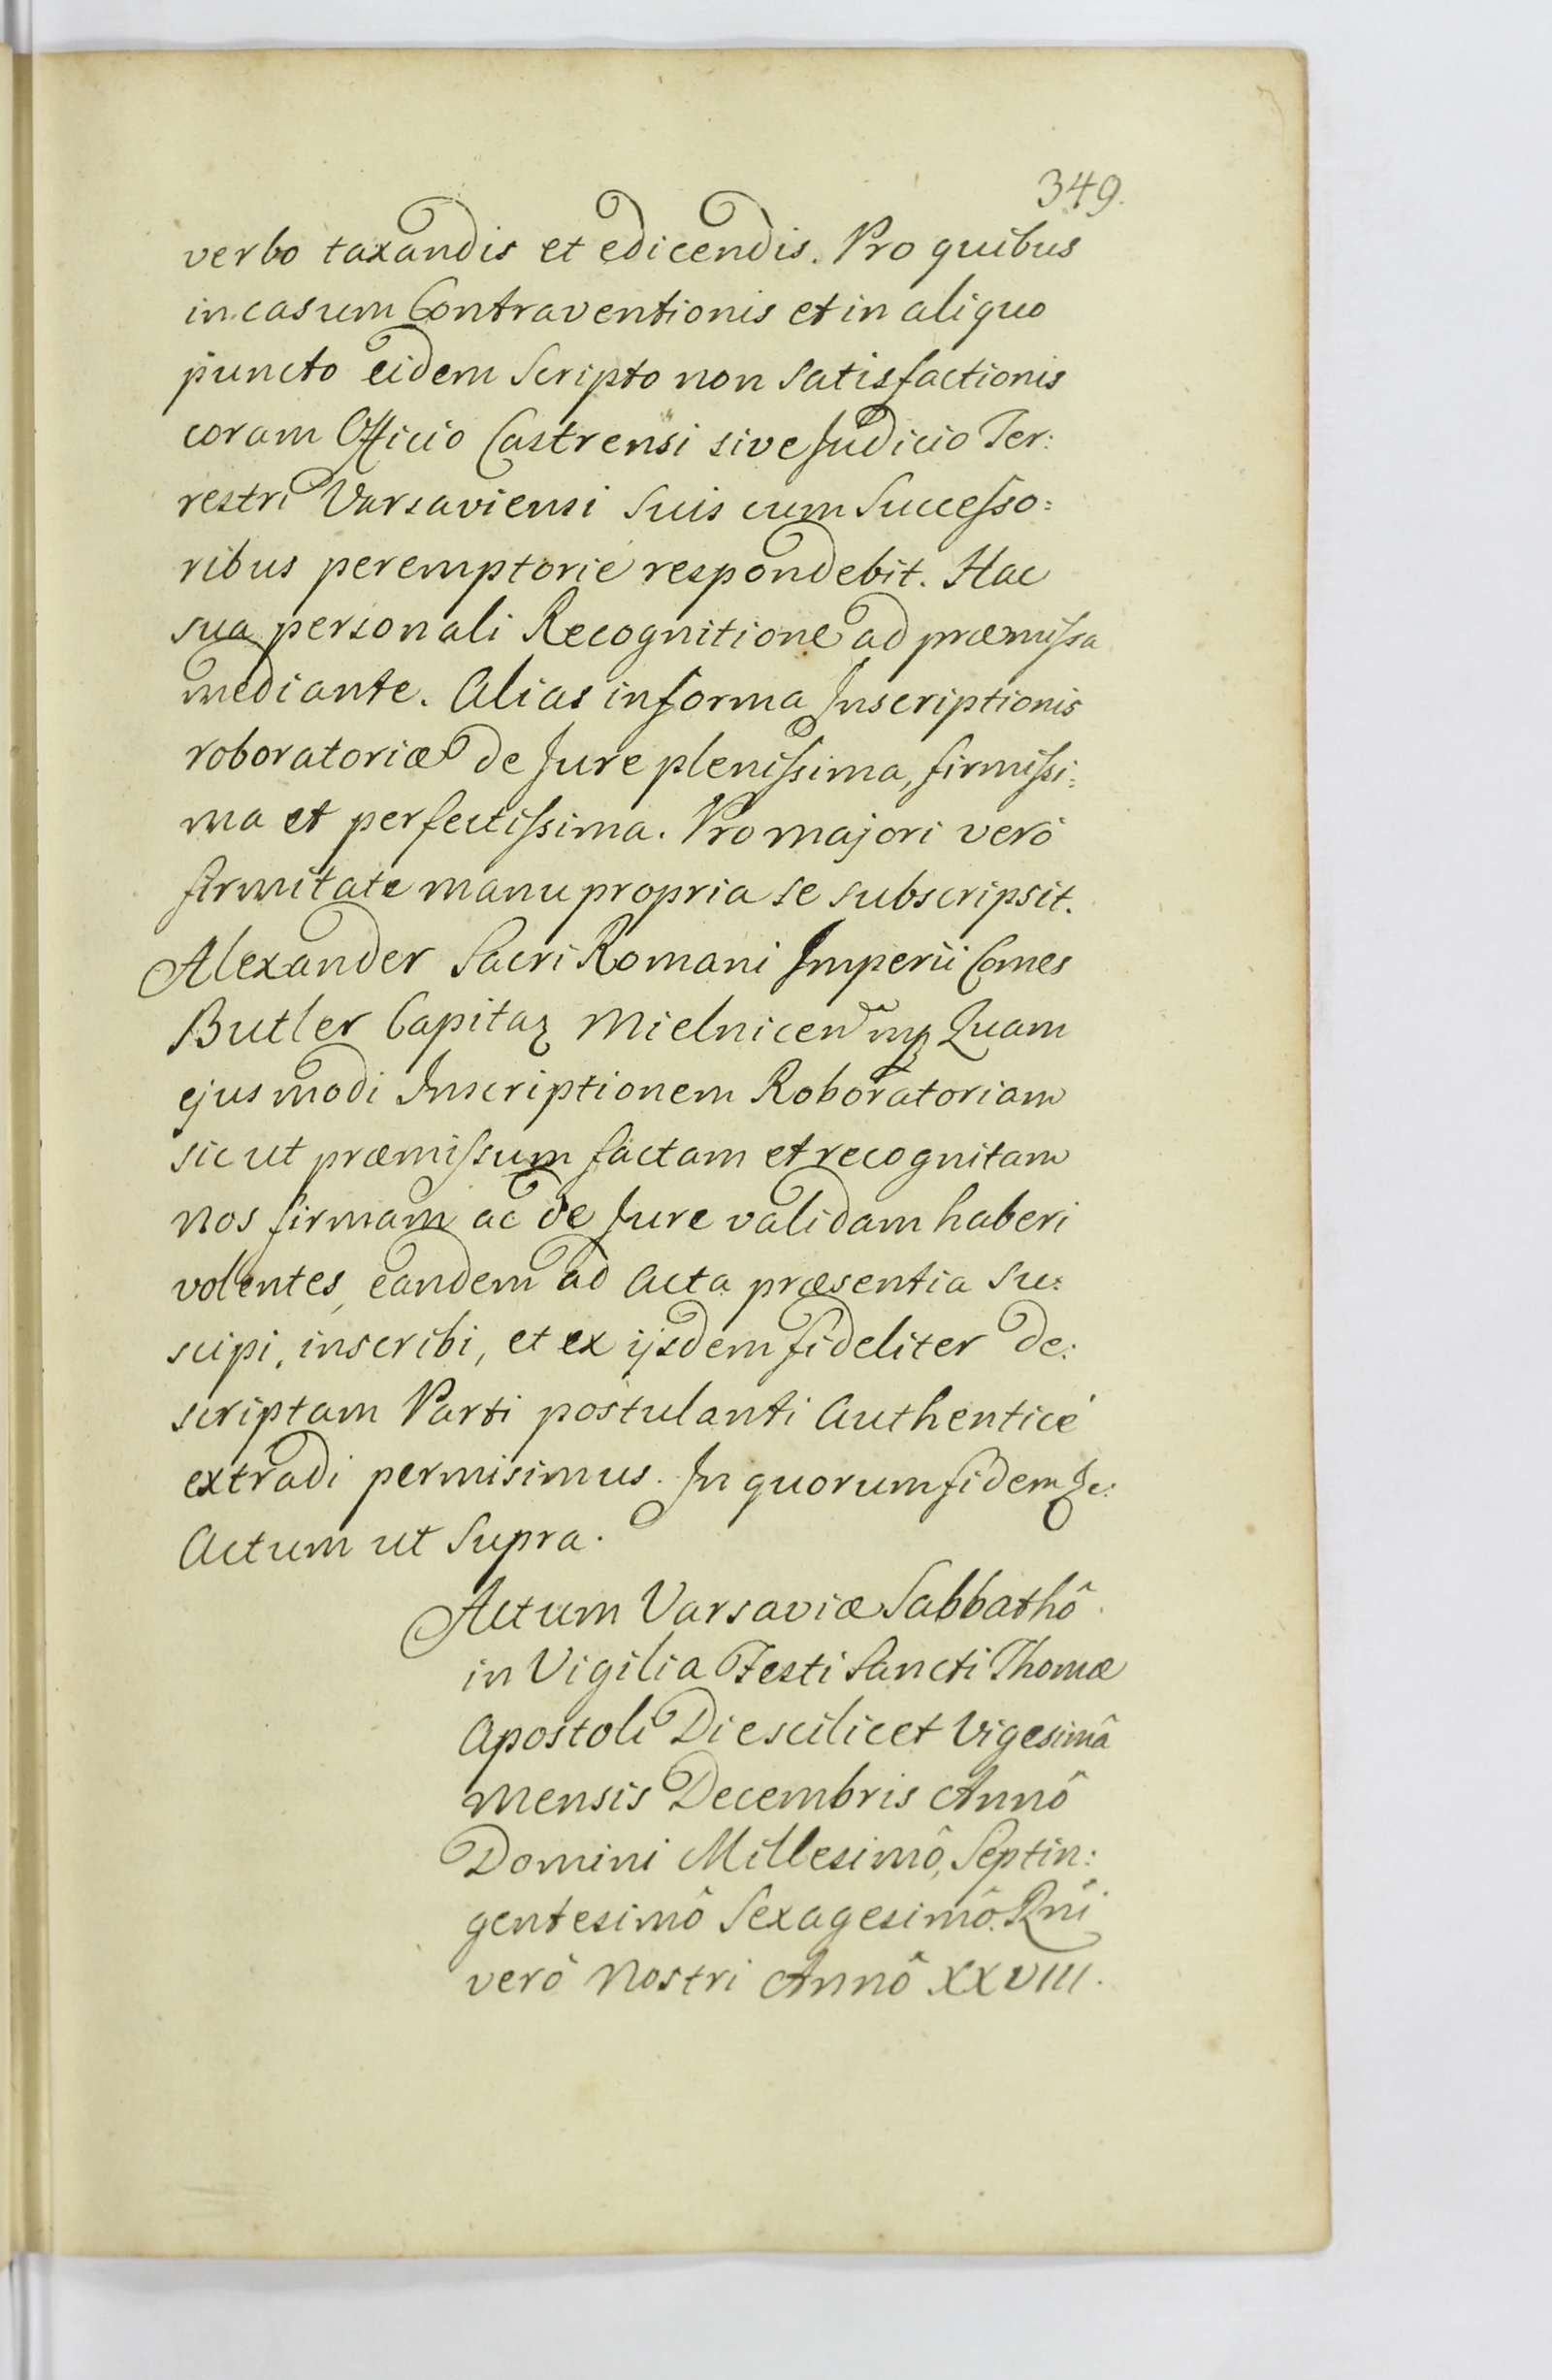 349.
verbo taxandis et edicendis. Pro quibus
in casum Contraventionis et in aliquo
puncto eidem Scripto non Satisfactionis
coram Officio Castrensi sive Judicio Ter:
restri Varsaviensi Suis cum Successo:
ribus peremptorie respondebit. Hac
sua personali Recognitione ad præmissa
mediante. Alias in forma Inscriptionis
roboratoriæ de Jure plenissima, firmissi:
ma et perfectissima. Pro majori verò
firmitate manu propria se subscripsit.
Alexander Sacri Romani Imperii Comes
Butler Capitaꝫ Mielnicen mp Quam
ejusmodi Inscriptionem Roboratoriam
sic ut præmissum factam et recognitam
nos firmam ac de Jure validam haberi
volentes, eandem ad Acta præsentia Su:
scipi, inscribi, et ex ijsdem fideliter de:
scriptam Parti postulanti Authenticè
extradi permisimus. In quorum fidem &c:
Actum ut Supra.
Actum Varsaviæ Sabbathô
in Vigilia Festi Sancti Thomæ
Apostoli Die scilicet Vigesimâ
Mensis Decembris Annô
Domini Millesimô, Septin:
gentesimô Sexagesimô. Rni
verò Nostri Annô XXVIII.